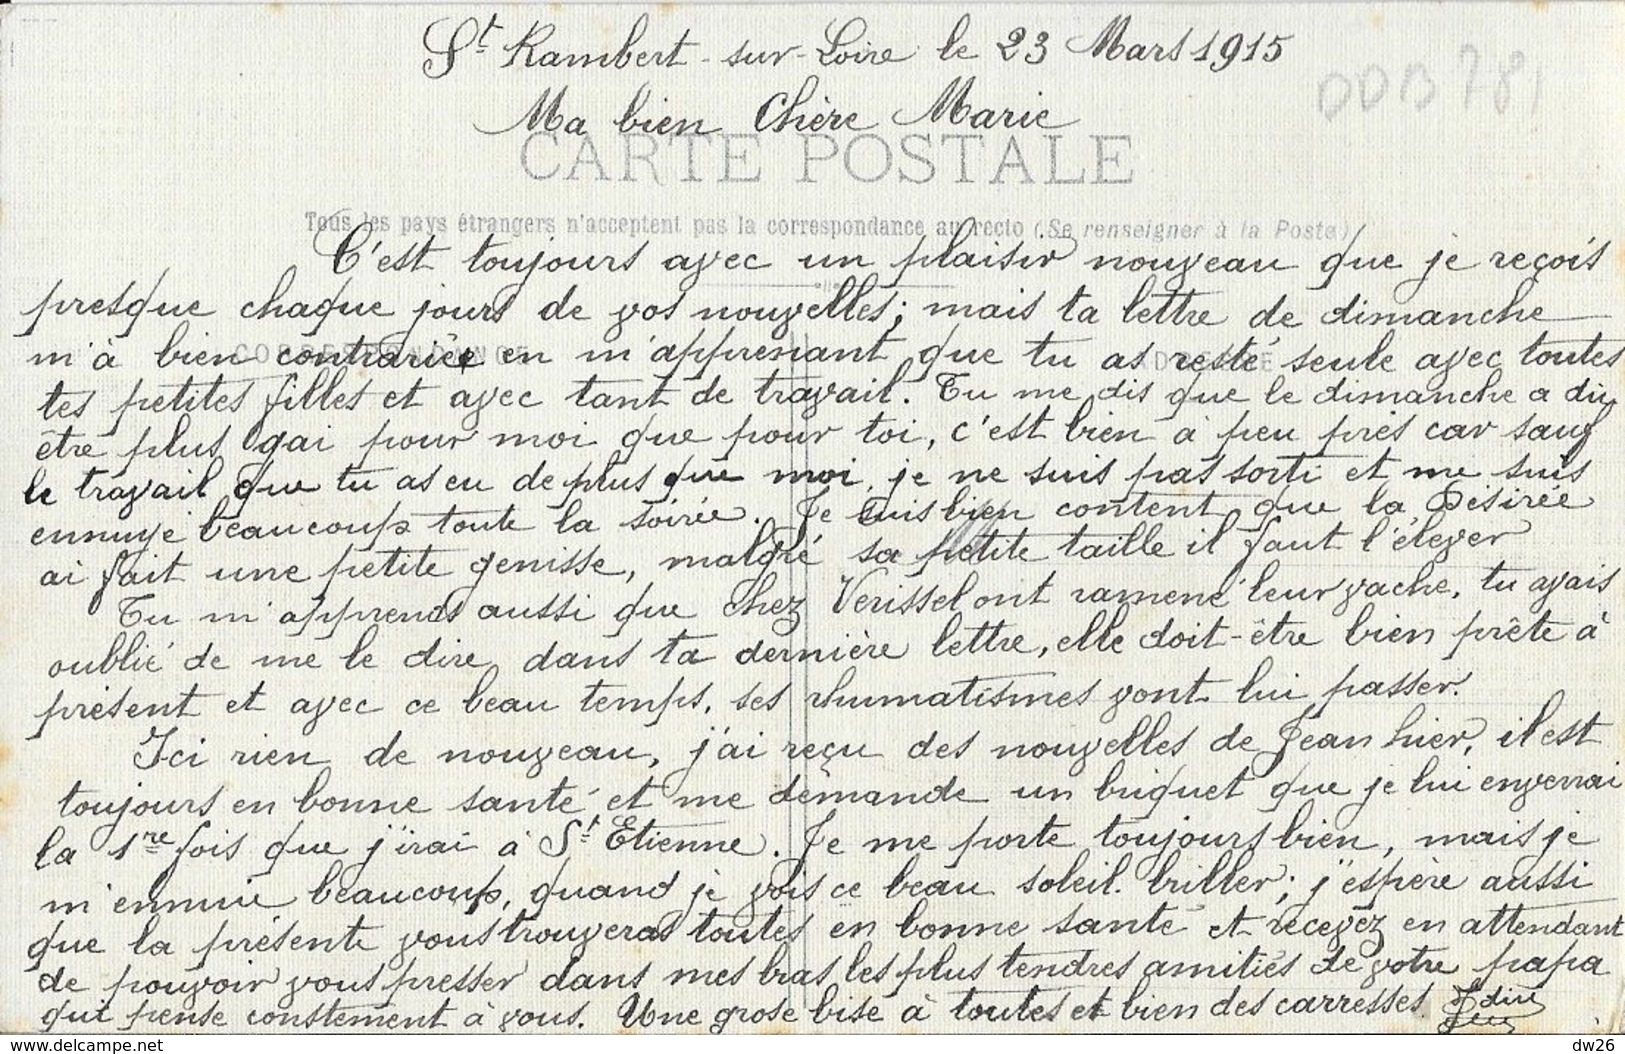 St Rambert-sur-Loire le 23 Mars 1915
DDB 781
Ma bien Chère Marie
CARTE POSTALE
Tous les pays étrangers n'acceptent pas la correspondance au recto (Se renseigner à la Poste)
C'est toujours avec un plaisir nouveau que je reçois
presque chaque jours de vos nouvelles; mais ta lettre de dimanche
CORRESPONDANCE
m'à bien contrariée en m'apprenant que tu as resté seule avec toutes
tes petites filles et avec tant de travail. Tu me dis que le dimanche a du
être plus gai pour moi que pour toi, c'est bien à peu près car sauf
le travail que tu as eu de plus que moi, je ne suis pas sorti et me suis
ennuyé beaucoup toute la soirée. Je suis bien content que la Désirée
ai fait une petite genisse, malgré sa petite taille il faut l'élever
Tu m'apprends aussi que chez Verissel ont ramené leur vache, tu avais
oublié de me le dire dans ta dernière lettre, elle doit-être bien prête à
présent et avec ce beau temps, ses rhumatismes vont lui passer.
Ici rien de nouveau, j'ai reçu des nouvelles de Jean hier, il est
toujours en bonne santé et me demande un briquet que je lui enverrai
la 1re fois que j'irai à St Etienne. Je me porte toujours bien, mais je
m'ennuie beaucoup, quand je vois ce beau soleil briller; j'espère aussi
que la présente vous trouveras toutes en bonne santé et recevez en attendant
de pouvoir vous presser dans mes bras les plus tendres amitiés de votre papa
qui pense constement à vous. Une grose bise à toutes et bien des carresses
delcampe.net
dw26